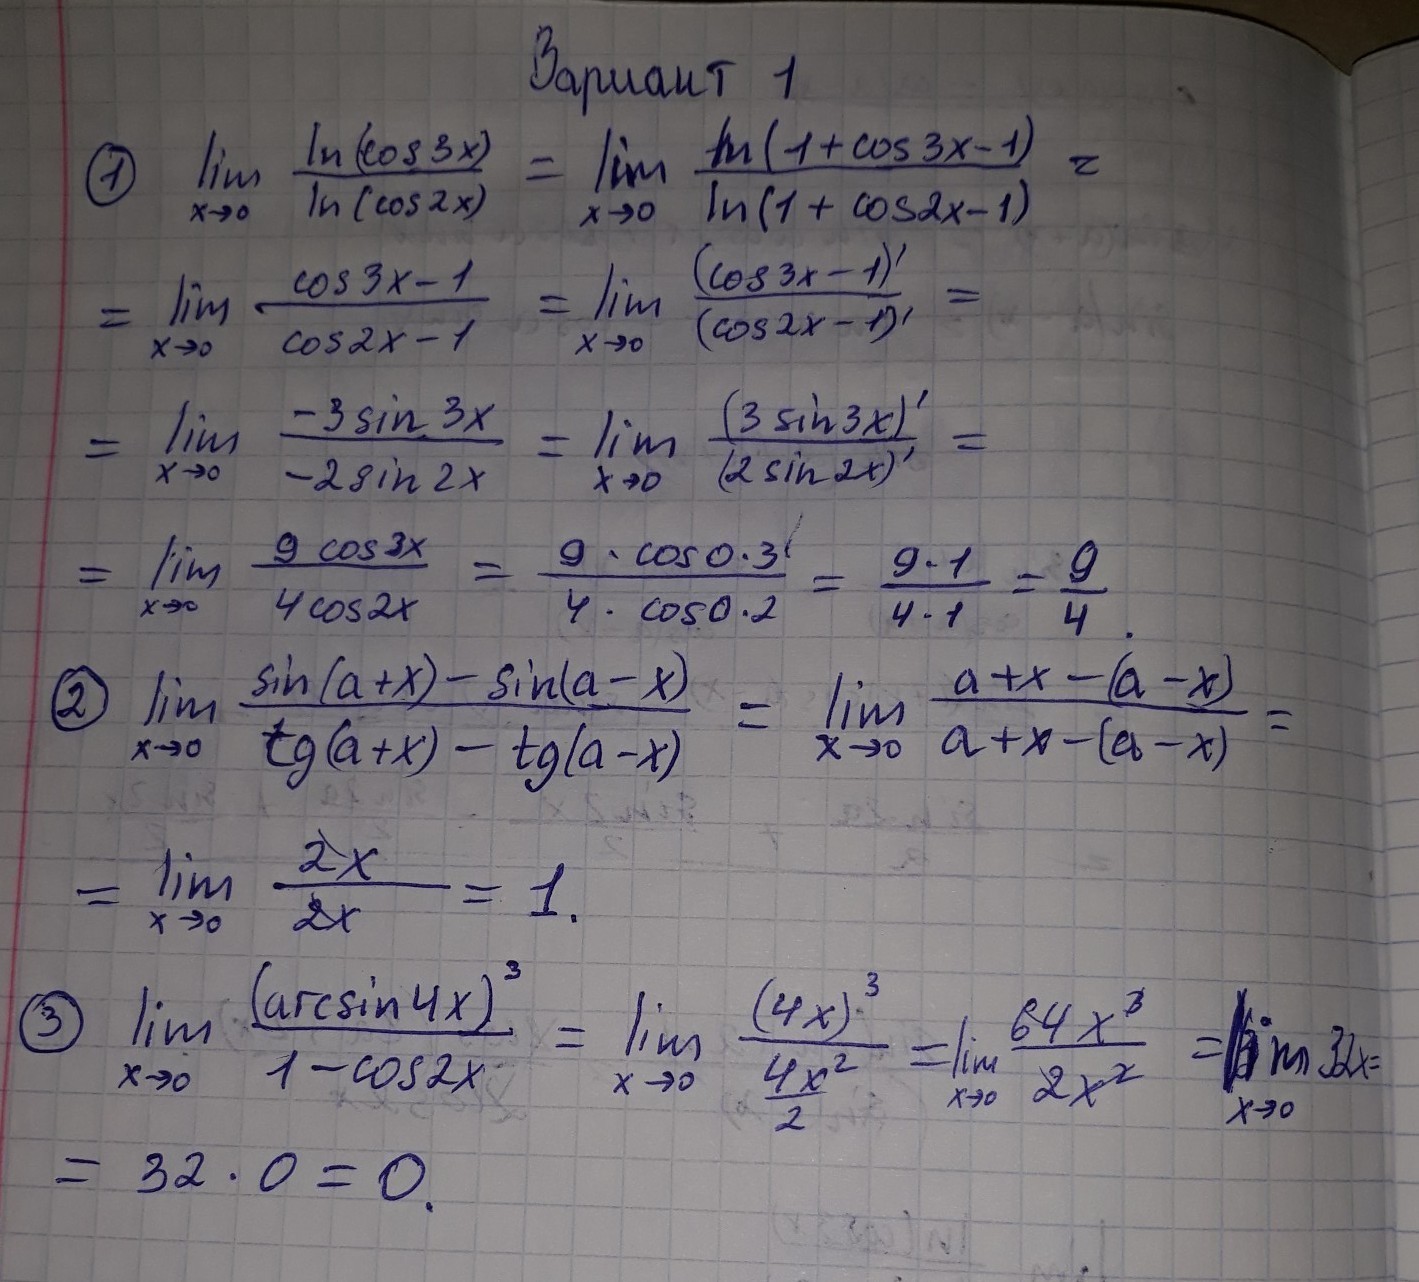 Вариант 1
① lim x→0 ln(cos3x)/ln(cos2x) = lim x→0 ln(1+cos3x-1)/ln(1+cos2x-1) =
= lim x→0 (cos3x-1)/(cos2x-1) = lim x→0 (cos3x-1)'/(cos2x-1)' =
= lim x→0 (-3sin3x)/(-2sin2x) = lim x→0 (3sin3x)'/(2sin2x)' =
= lim x→0 (9cos3x)/(4cos2x) = (9·cos0·3)/(4·cos0·2) = (9·1)/(4·1) = 9/4.
② lim x→0 (sin(a+x)-sin(a-x))/(tg(a+x)-tg(a-x)) = lim x→0 (a+x-(a-x))/(a+x-(a-x)) =
= lim x→0 2x/2x = 1.
③ lim x→0 (arcsin4x)³/(1-cos2x) = lim x→0 (4x)³/(4x²/2) = lim x→0 64x³/2x² = lim x→0 32x =
= 32·0 = 0.